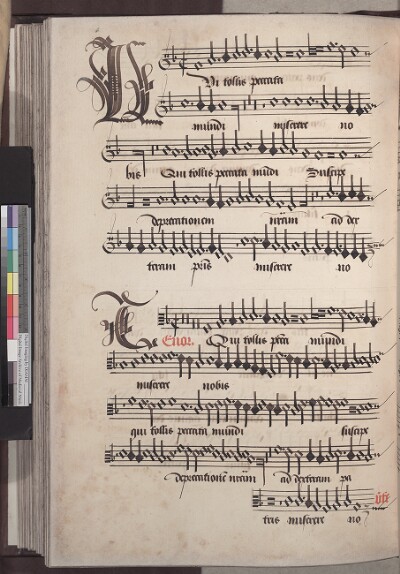 Qui tollis peccata
mundi miserere no
bis Qui tollis peccata mūdi Suscipe
deprecationem nr̄am ad dex
teram pr̄is miserere no
Tenor. Qui tollis pctā mūndi
miserere nobis
qui tollis peccata mundi suscipe
deprecationē nr̄am ad dexteram pa
tris miserere no